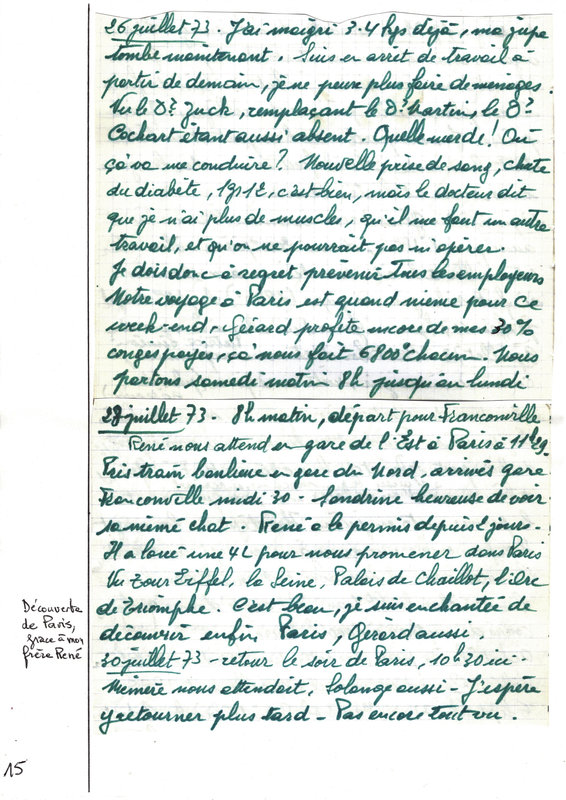 26 juillet 73. J'ai maigri 3.4 kgs déjà, ma jupe
tombe maintenant. Suis en arrêt de travail à
partir de demain, je ne peux plus faire de ménages.
Vu le Dr Juck, remplaçant le Dr Martin, le Dr
Cochart étant aussi absent. Quelle merde! Où
ça va me conduire? Nouvelle prise de sang, chute
du diabète, 1g12, c'est bien, mais le docteur dit
que je n'ai plus de muscles, qu'il me faut un autre
travail, et qu'on ne pourrait pas m'opérer.
Je dois donc à regret prévenir tous les employeurs
Notre voyage à Paris est quand même pour ce
week-end, Gérard profite encore de mes 30%
congés payés, çà nous fait 6800 chacun. Nous
partons samedi matin 8h jusqu'au lundi
28 juillet 73 - 8h matin, départ pour Franconville
René nous attend en gare de l'Est à Paris à 11h29.
Pris train banlieue en gare du Nord, arrivés gare
Franconville midi 30 - Sandrine heureuse de voir
sa mémé chat. René a le permis depuis 2 jours -
Il a loué une 4L pour nous promener dans Paris
Vu Tour Eiffel, la Seine, Palais de Chaillot, l'Arc
de Triomphe. C'est beau, je suis enchantée de
découvrir enfin Paris, Gérard aussi
30 juillet 73 - retour le soir de Paris, 10h30 ici -
Mémère nous attendait, Solange aussi - J'espère
y retourner plus tard - Pas encore tout vu.
Découverte
de Paris,
grâce à mon
frère René
15